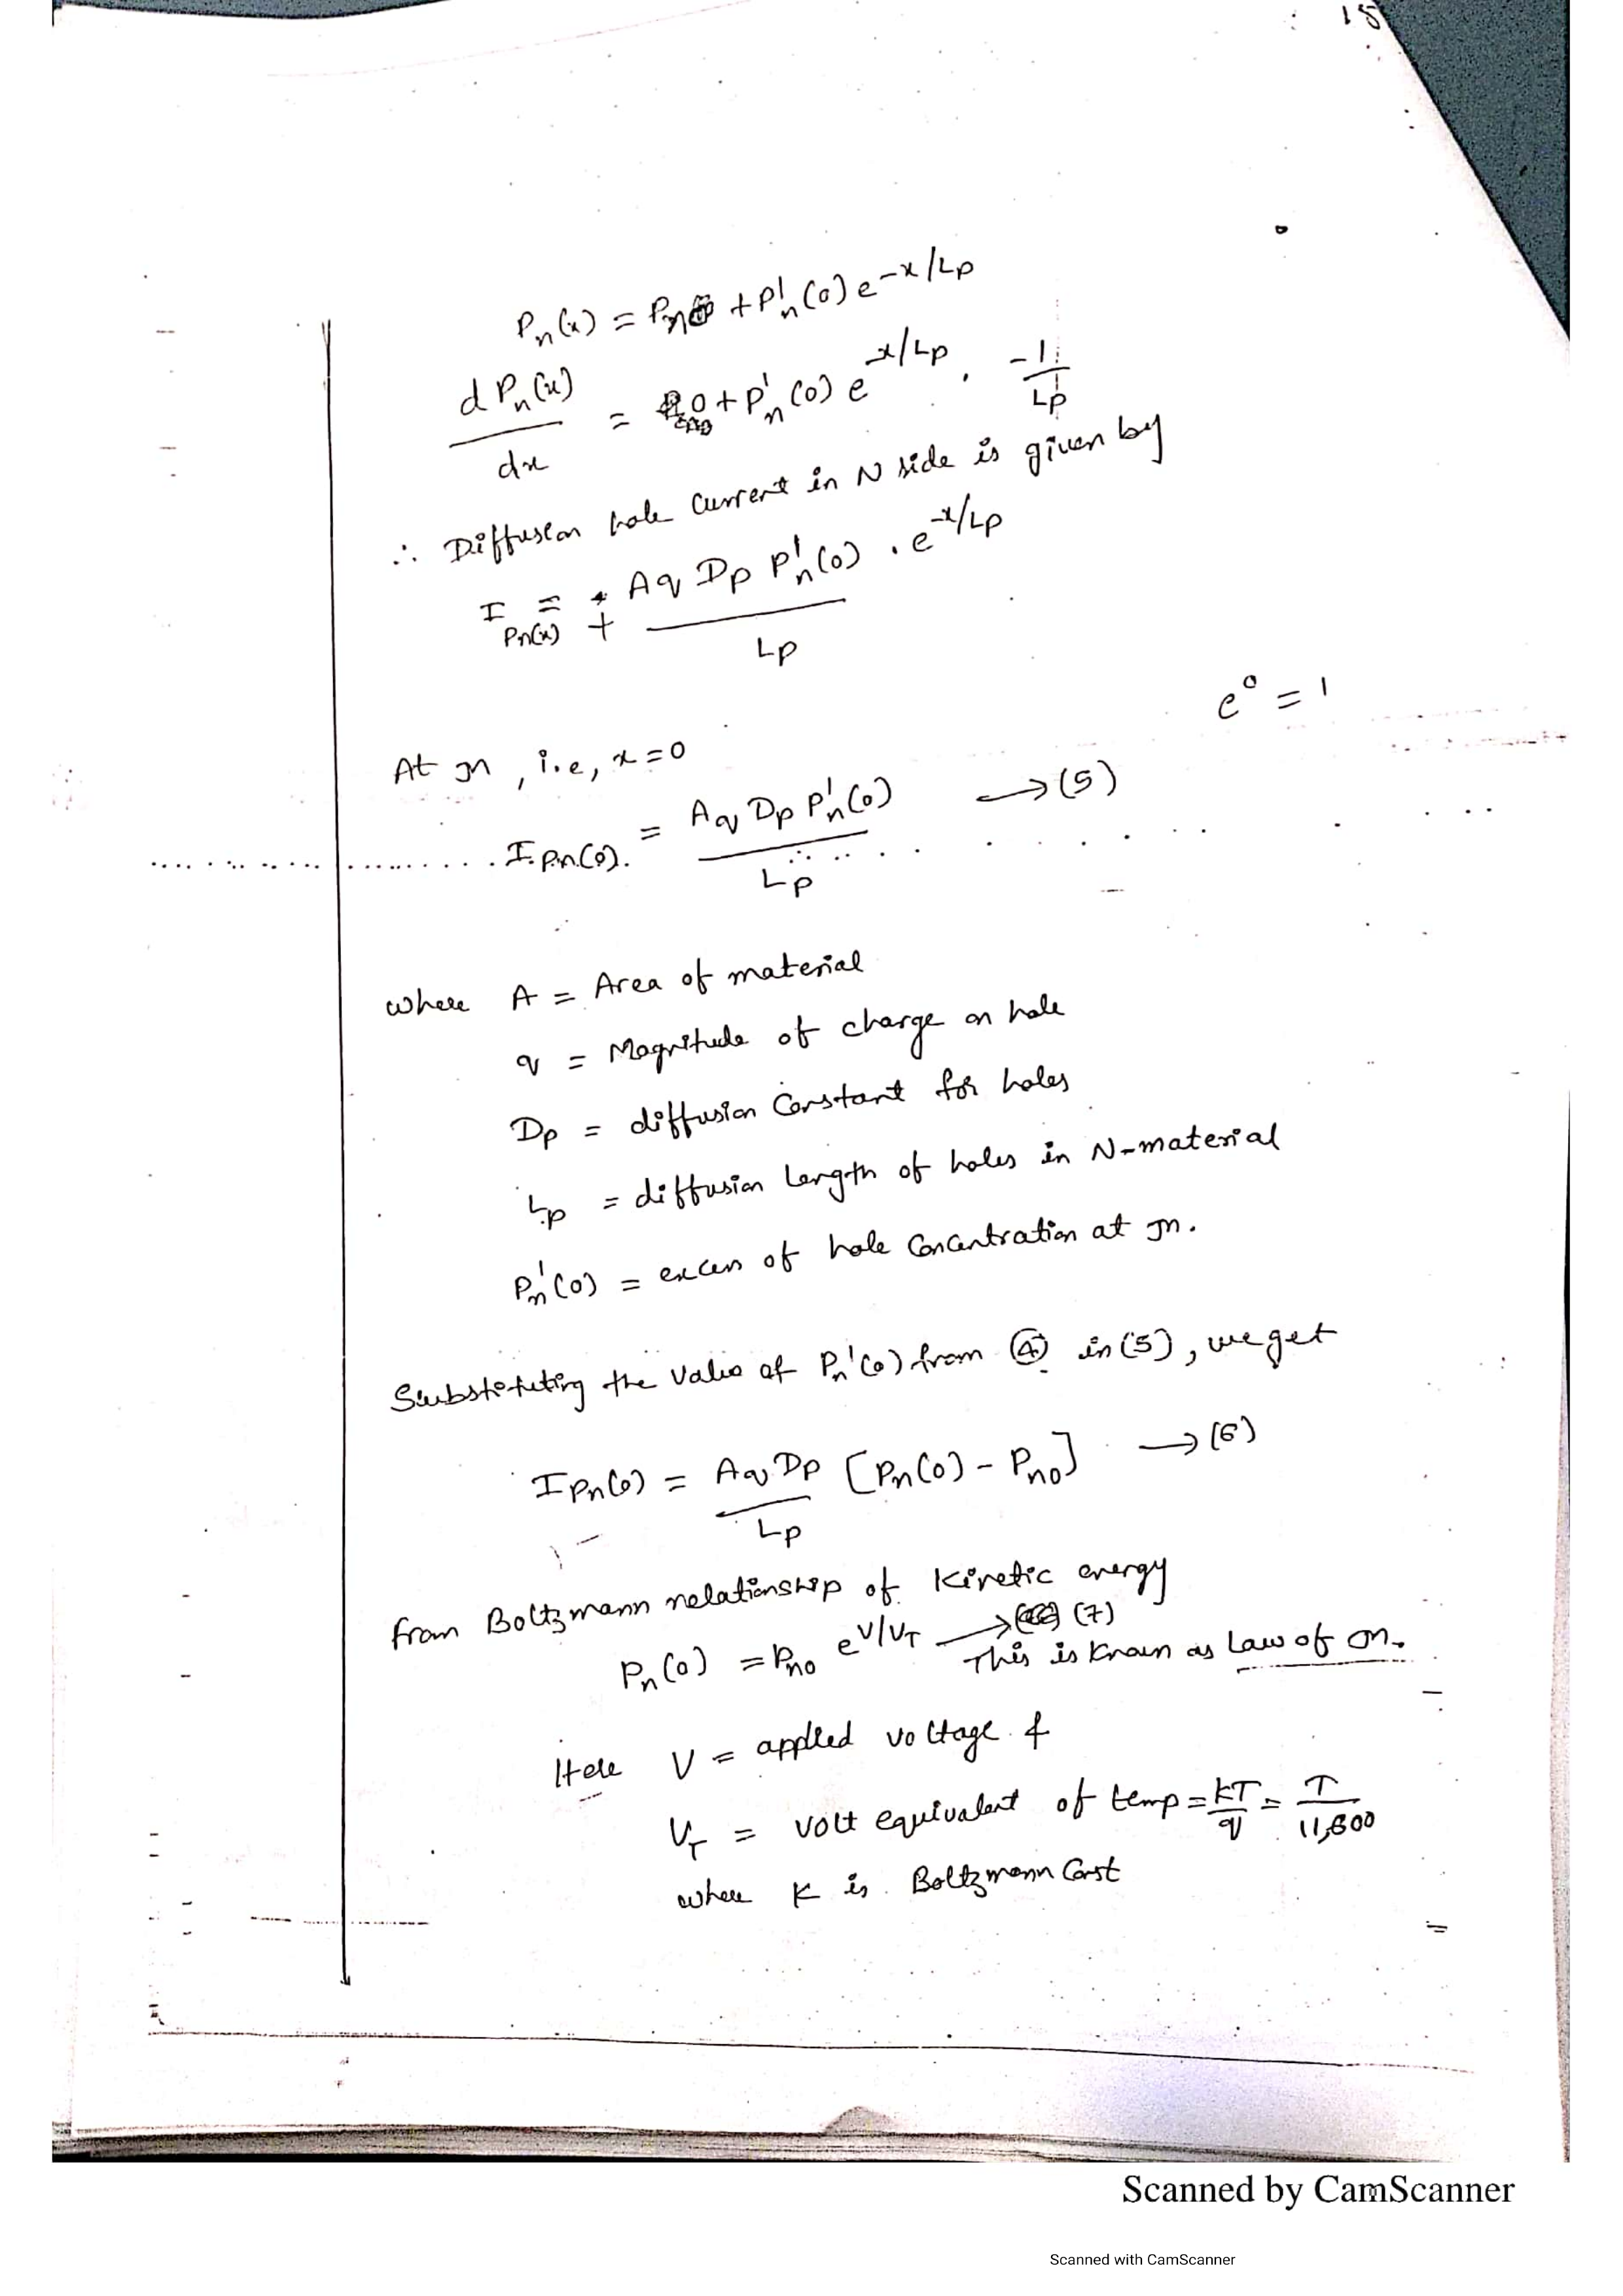 15
Pn(x) = Pn0 + P'n(0) e^-x/Lp
dPn(x)/dx = 0 + P'n(0) e^-x/Lp . -1/Lp
∴ Diffusion hole current in N side is given by
I Pn(x) = + Aq Dp P'n(0) . e^-x/Lp / Lp
e^0 = 1
At Jn, i.e, x=0
I Pn(0) = Aq Dp P'n(0) / Lp → (5)
where A = Area of material
q = Magnitude of charge on hole
Dp = diffusion Constant for holes
Lp = diffusion Length of holes in N-material
P'n(0) = excess of hole Concentration at Jn.
Substituting the value of Pn'(0) from ④ in (5), we get
I Pn(0) = Aq Dp / Lp [Pn(0) - Pno] → (6)
from Boltzmann relationship of Kinetic energy
Pn(0) = Pno e^V/VT → (7)
This is known as Law of Jn.
Here V = applied voltage &
VT = volt equivalent of temp = kT/q = T/11,600
where K is Boltzmann Const
Scanned by CamScanner
Scanned with CamScanner